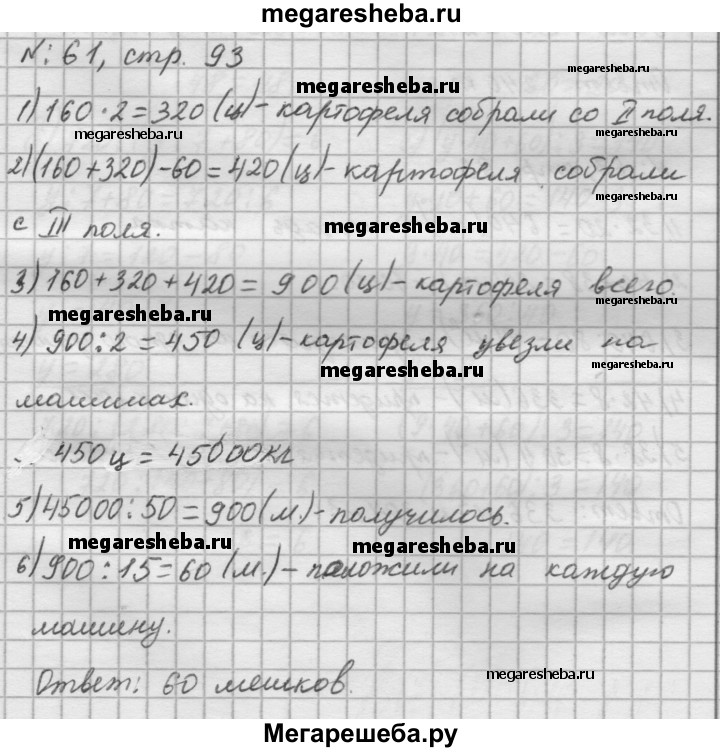 megaresheba.ru
N: 61, стр. 93
megaresheba.ru
megaresheba.ru
1) 160 · 2 = 320 (ц) - картофеля собрали со II поля.
megaresheba.ru
2) (160 + 320) - 60 = 420 (ц) - картофеля собрали
megaresheba.ru
с III поля.
megaresheba.ru
3) 160 + 320 + 420 = 900 (ц) - картофеля всего.
megaresheba.ru
megaresheba.ru
4) 900 : 2 = 450 (ц) - картофеля увезли на
megaresheba.ru
megaresheba.ru
машинах.
450 ц = 45000 кг
5) 45000 : 50 = 900 (м.) - получилось.
megaresheba.ru
megaresheba.ru
6) 900 : 15 = 60 (м.) - положили на каждую
машину.
Ответ: 60 мешков.
megaresheba.ru
Мегарешеба.ру